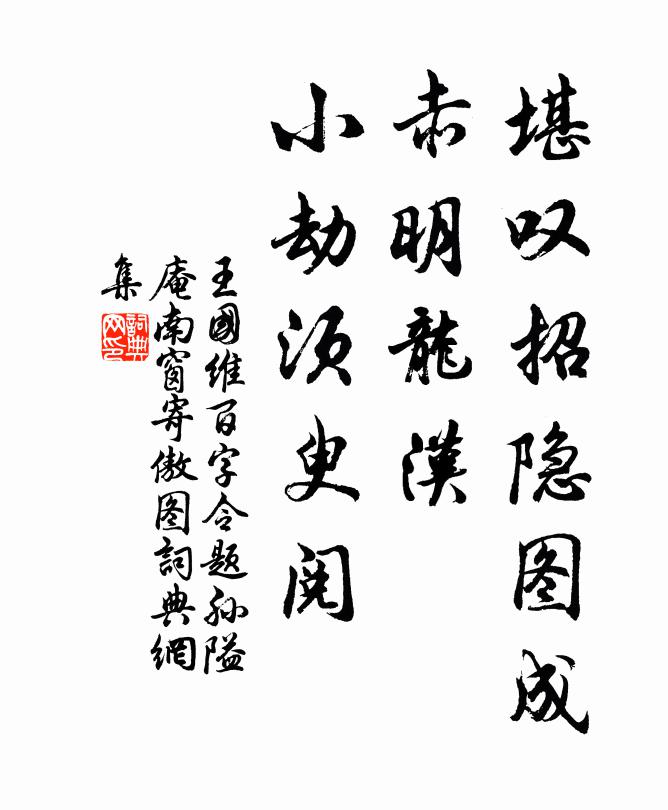 堪叹招隐图成
赤明龍漢
小劫须臾阅
王國维百字令题孙隘
庵南窗寄傲图詞典網
集
詞典
网印